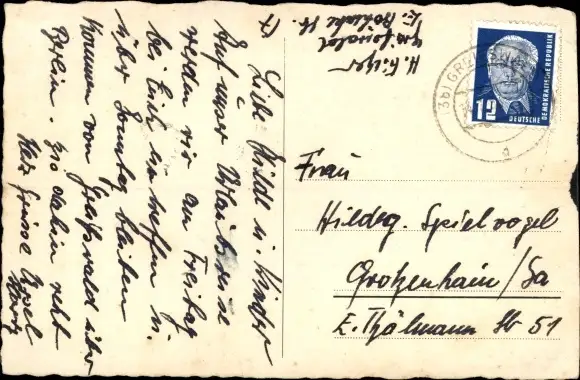 Liebe Hilde u. Kinder
Auf unser Urlaubsreise
werden wir am Freitag
bei Euch eintreffen u.
über Sonntag bleiben
Kommen vom Greifswald über
Berlin. Bis dahin recht
Herz. Grüsse
12
DEUTSCHE
DEMOKRATISCHE REPUBLIK
Frau
Hildeg. Spielvogel
Großenhain/Sa
E. Thälmann Str 51